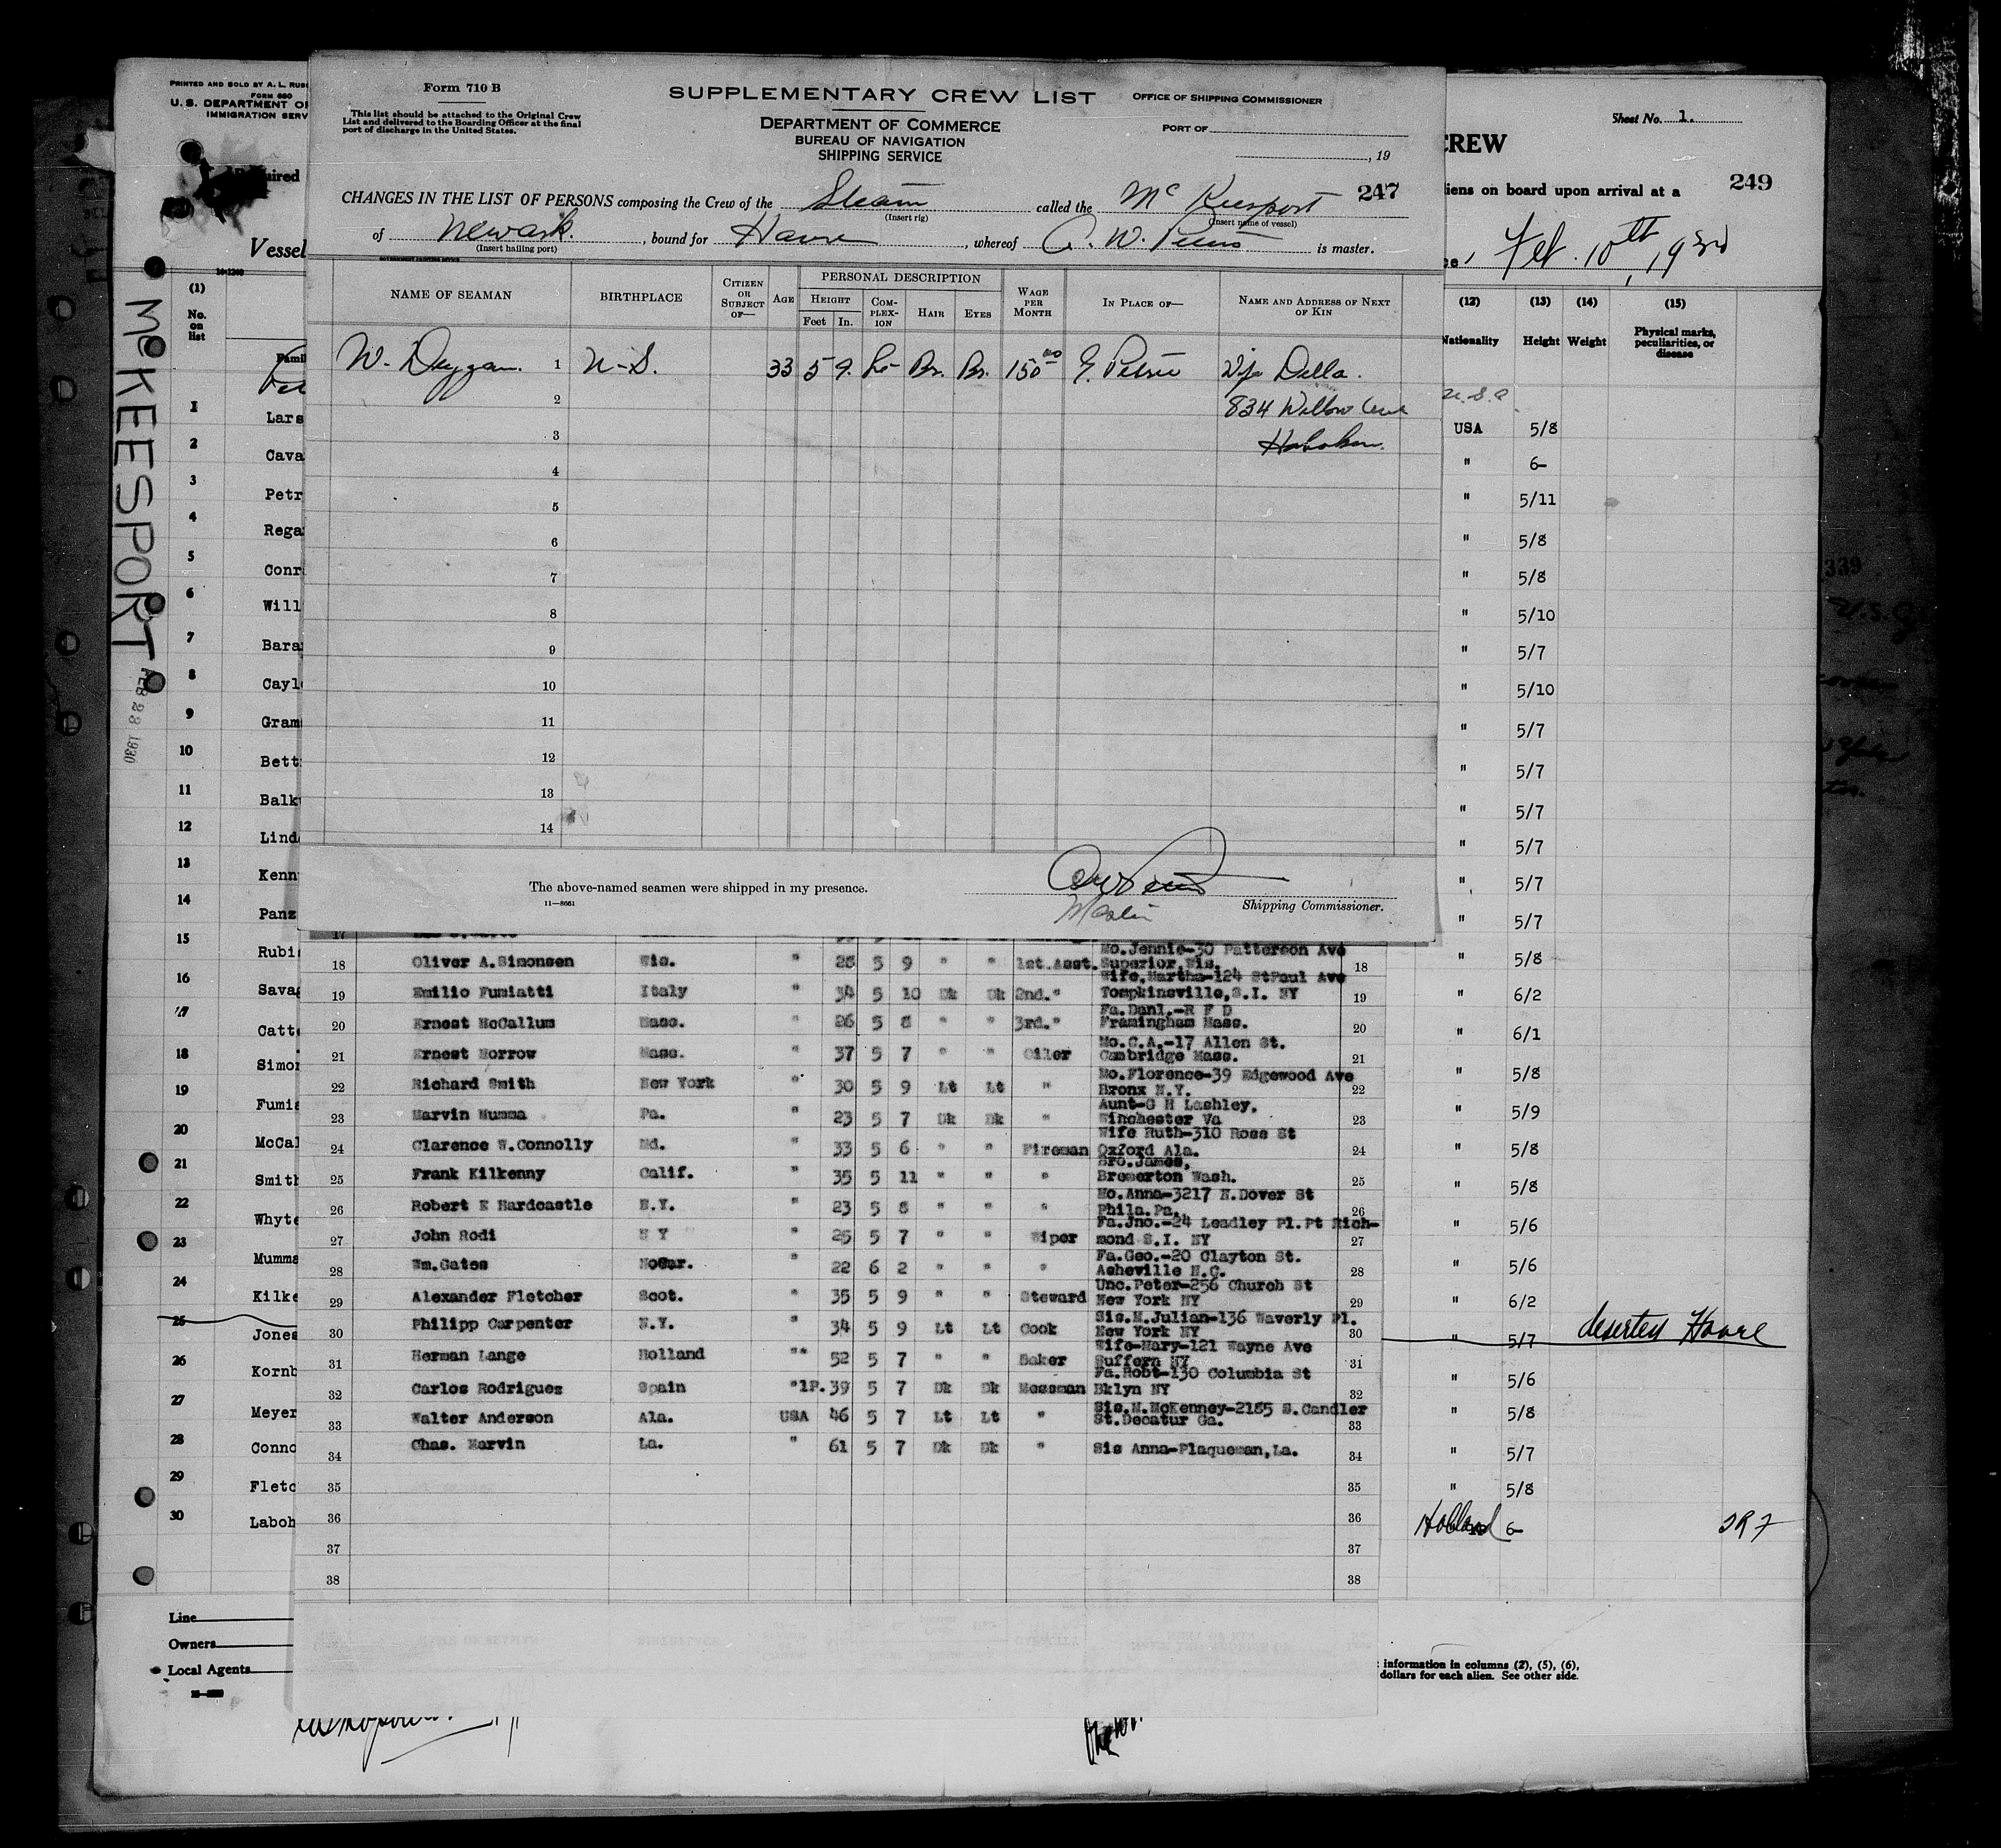 Form 710 B
This list should be attached to the Original Crew
List and delivered to the Boarding Officer at the final
port of discharge in the United States.
SUPPLEMENTARY CREW LIST
DEPARTMENT OF COMMERCE
BUREAU OF NAVIGATION
SHIPPING SERVICE
OFFICE OF SHIPPING COMMISSIONER
PORT OF
, 19
247
CHANGES IN THE LIST OF PERSONS composing the Crew of the Steam called the Mc Keesport
(Insert rig) (Insert name of vessel)
of Newark , bound for Havre , whereof C. W. is master.
(Insert hailing port)
NAME OF SEAMAN BIRTHPLACE CITIZEN OR SUBJECT OF— AGE PERSONAL DESCRIPTION HEIGHT Feet In. COMPLEXION HAIR EYES WAGE PER MONTH IN PLACE OF— NAME AND ADDRESS OF NEXT OF KIN
W. Duggan. 1 U-S. 33 5 9. Lt- Br. Br. 150 00 E. Petrie Wife Della.
2 834 Willow Ave
3 Hoboken.
4
5
6
7
8
9
10
11
12
13
14
The above-named seamen were shipped in my presence.
11—8661
Shipping Commissioner.
17
18 Oliver A.Simonsen Wis. " 28 5 9 " " 1st.Asst. Mo.Jennie-30 Patterson Ave Superior,Wis. 18
19 Emilio Fumiatti Italy " 34 5 10 Dk Dk 2nd." Wife,Martha-124 StPaul Ave Tompkinsville,S.I. NY 19
20 Ernest McCallum Mass. " 26 5 8 " " 3rd." Fa.Danl.-R F D Framingham Mass. 20
21 Ernest Morrow Mass. " 37 5 7 " " Oiler Mo.C.A.-17 Allen St. Cambridge Mass. 21
22 Richard Smith New York " 30 5 9 Lt Lt " Mo.Florence-39 Edgewood Ave Bronx N.Y. 22
23 Marvin Mumma Pa. " 23 5 7 Dk Dk " Aunt-G H Lashley, Winchester Va 23
24 Clarence W.Connolly Md. " 33 5 6 " " Fireman Wife Ruth-310 Ross St Oxford Ala. 24
25 Frank Kilkenny Calif. " 35 5 11 " " " Bro.James, Bremerton Wash. 25
26 Robert E Hardcastle N.Y. " 23 5 8 " " " Mo.Anna-3217 N.Dover St Phila.Pa. 26
27 John Rodi N Y " 25 5 7 " " Wiper Fa.Jno.-24 Leadley Pl.Pt Rich- mond S.I. NY 27
28 Wm.Gates NoCar. " 22 6 2 " " " Fa.Geo.-20 Clayton St. Asheville N.C. 28
29 Alexander Fletcher Scot. " 35 5 9 " " Steward Unc.Peter-256 Church St New York NY 29
30 Philipp Carpenter N.Y. " 34 5 9 Lt Lt Cook Sis.M.Julian-136 Waverly Pl. New York NY 30
31 Herman Lange Holland "" 52 5 7 " " Baker Wife-Mary-121 Wayne Ave Suffern NY 31
32 Carlos Rodriguez Spain "1P. 39 5 7 Dk Dk Messman Fa.Robt-130 Columbia St Bklyn NY 32
33 Walter Anderson Ala. USA 46 5 7 Lt Lt " Sis.M.McKenney-2185 S.Candler St.Decatur Ga. 33
34 Chas. Marvin La. " 61 5 7 Dk Dk " Sis Anna-Plaqueman,La. 34
35 35
36 36
37 37
38 38
PRINTED AND SOLD BY A. L. RUS
FORM 680
U. S. DEPARTMENT O
IMMIGRATION SERV
Vessel
McKEESPORT
FEB 28 1930
(1)
No. on list
Famil
1 Lars
2 Cava
3 Petr
4 Rega
5 Conr
6 Will
7 Bara
8 Cayl
9 Gram
10 Bett
11 Balk
12 Lind
13 Kenn
14 Panz
15 Rubi
16 Sava
17 Catt
18 Simo
19 Fumi
20 McCa
21 Smith
22 Whyte
23 Mumma
24 Kilke
25 Jones
26 Kornb
27 Meyer
28 Conno
29 Fletc
30 Laboh
Line
Owners
Local Agents
Sheet No. 1.
CREW
iens on board upon arrival at a
249
Feb. 10th, 1930
(12) (13) (14) (15)
Nationality Height Weight Physical marks, peculiarities, or disease
U.S.A.
USA 5/8
" 6-
" 5/11
" 5/8
" 5/8
" 5/10
" 5/7
" 5/10
" 5/7
" 5/7
" 5/7
" 5/7
" 5/7
" 5/7
" 5/8
" 6/2
" 6/1
" 5/8
" 5/9
" 5/8
" 5/8
" 5/6
" 5/6
" 6/2
" 5/7 deserted Havre
" 5/6
" 5/8
" 5/7
" 5/8
Holland 6-
information in columns (2), (5), (6),
dollars for each alien. See other side.
339